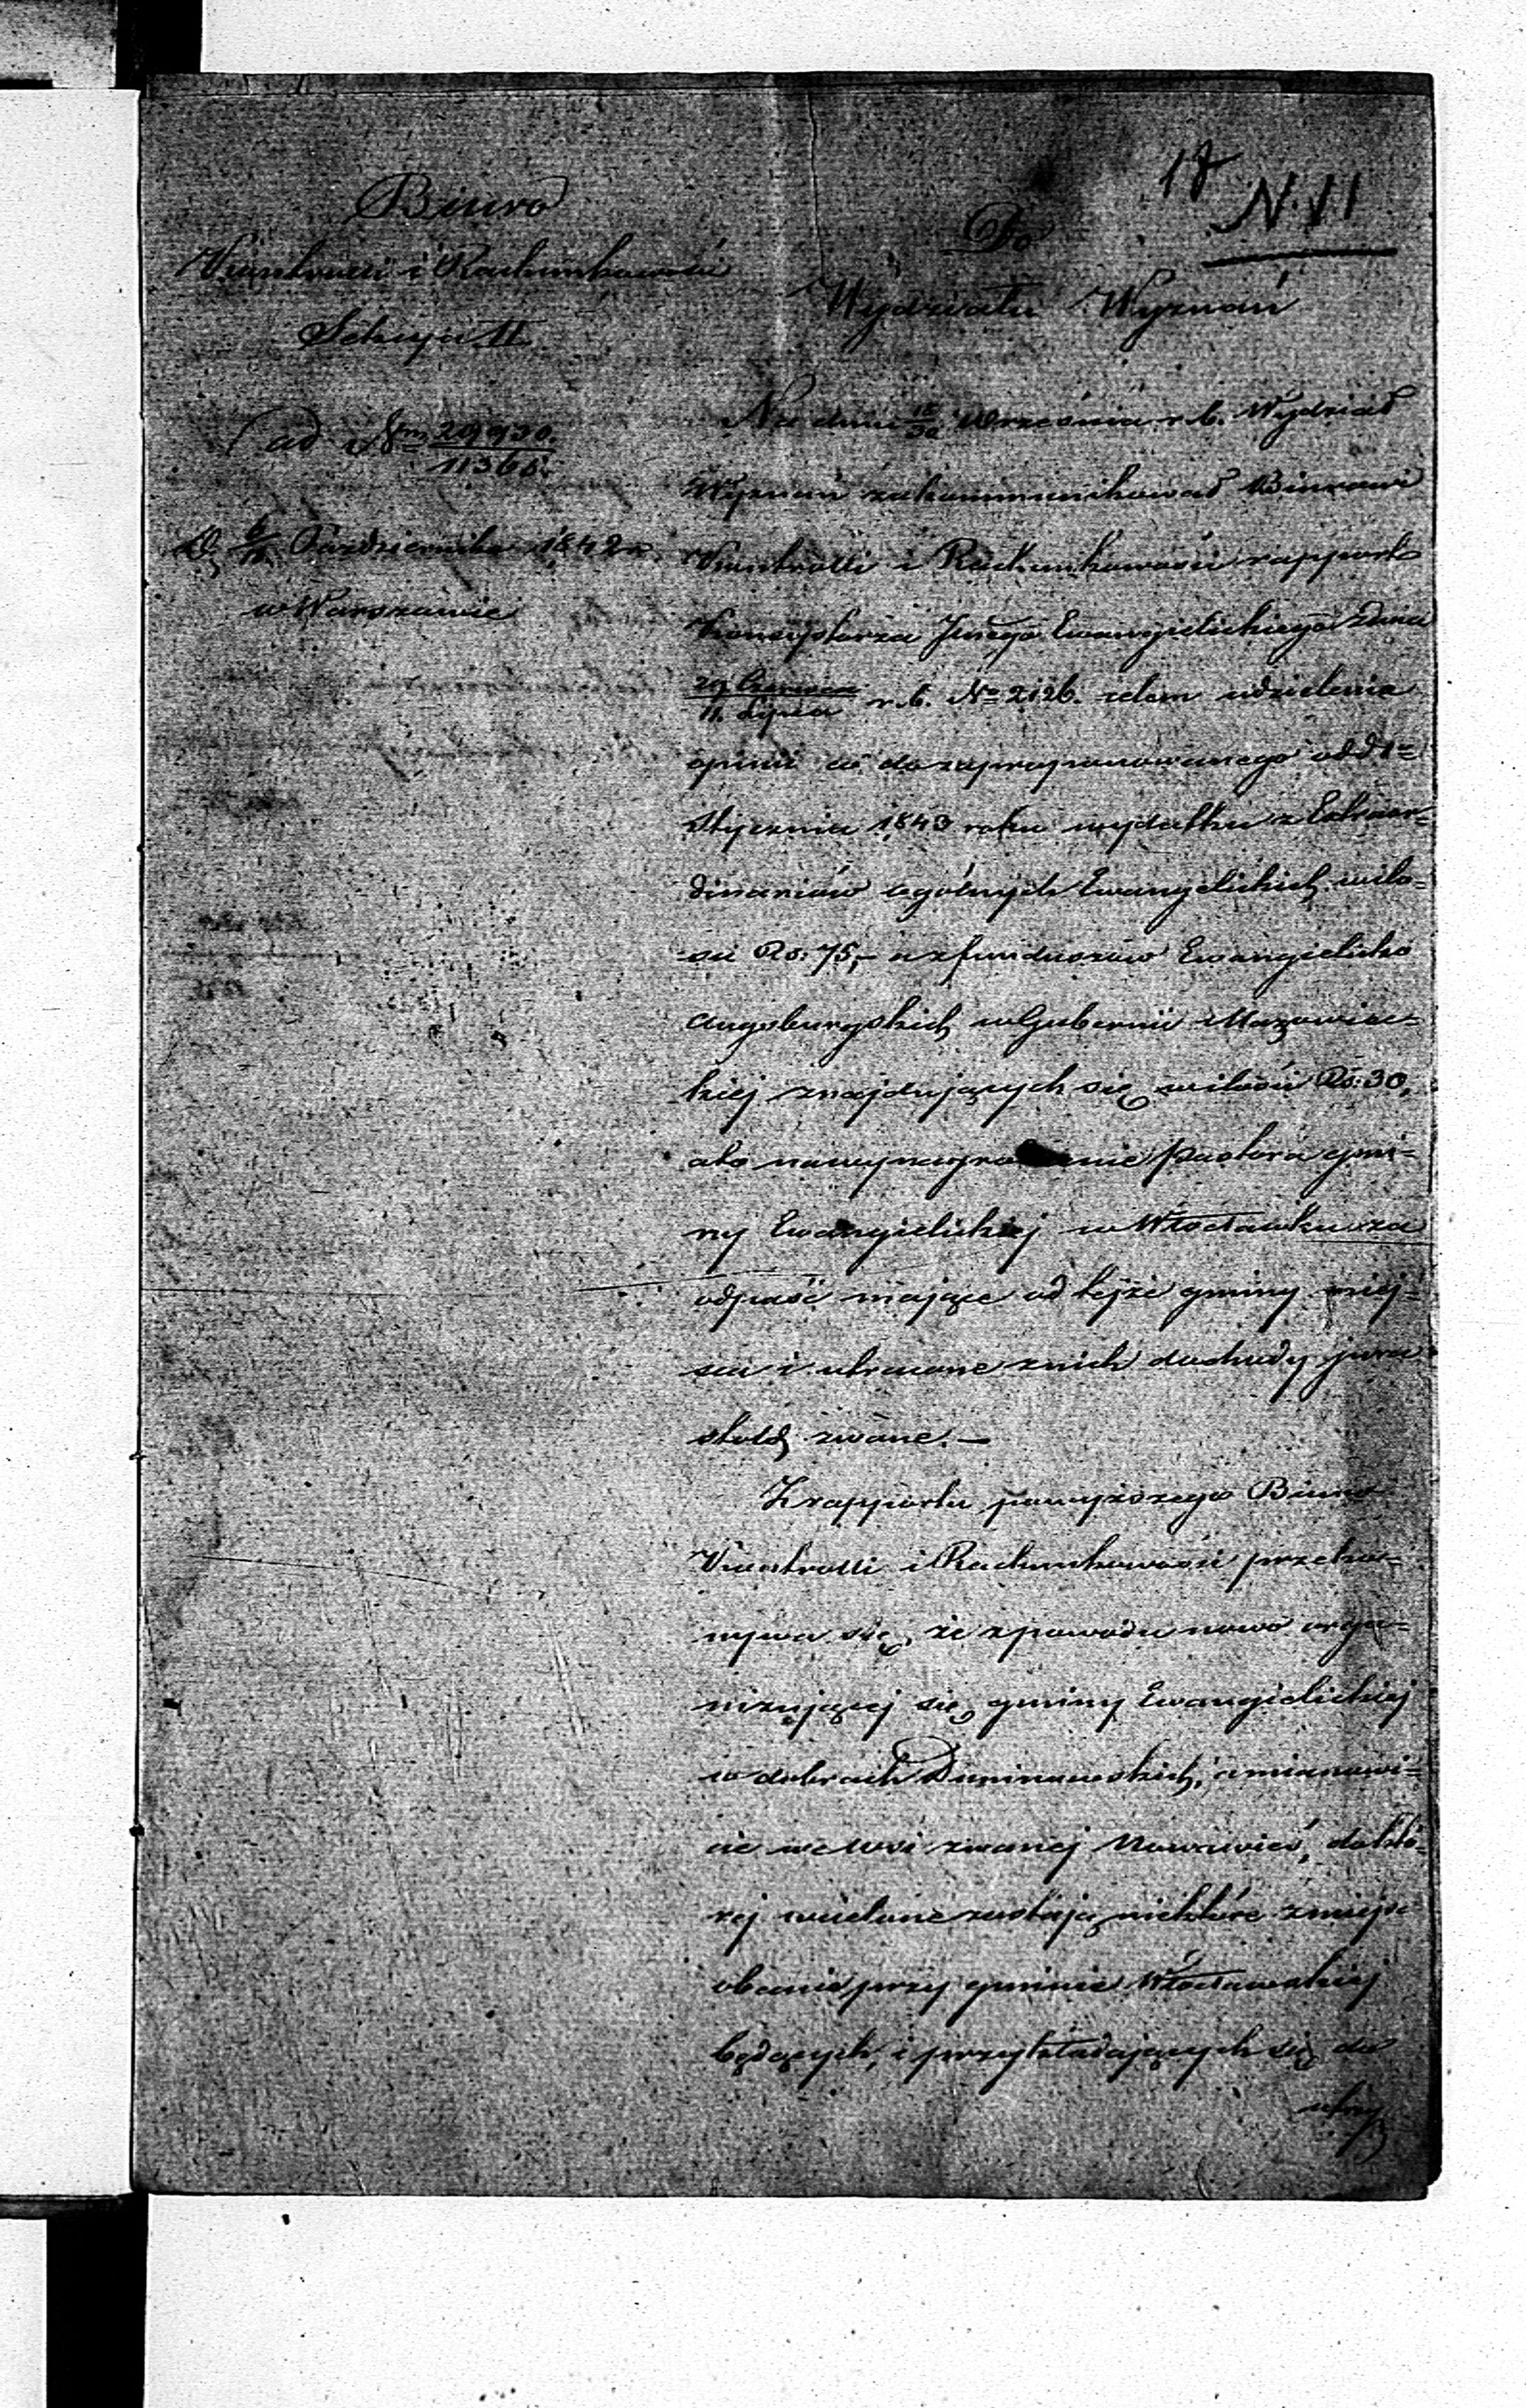 17
N. VI
Biuro
Kontrolli i Rachunkowości
Sekcya II
ad Nrm 29930.
11365.
D. 6/18 Października 1842 r.
w Warszawie
Do
Wydziału Wyznań
Na dniu 18/30 Września r. b. Wydział
Wyznań zakommunikował Biurowi
Kontrolli i Rachunkowości rapport
Konsystorza Jnego Ewangielickiego z dnia
29 Czerwca
11. Lipca r. b. No 2126. celem udzielenia
opinii co do zaproponowanego od d 1=
Stycznia 1843 roku wydatku z Extraor=
dinariów ogólnych Ewangelickich w ilo=
ści Rs: 75,- a z funduszów Ewangielicko
Augsburgskich w Gubernii Mazowiec=
kiej znajdujących się w ilości Rs: 30,
a to na wynagrodzenie Pastora gmi=
ny Ewangielickiej w Włocławku za
odpaść mające od tejże gminy miej=
sca i utracone z nich dochody jura
stolæ zwane.—
Z rapportu powyższego Biuro
Kontrolli i Rachunkowości przeko=
nywa się, że z powodu nowo orga=
nizującej się gminy Ewangielickiej
w dobrach Duninowskich, a mianowi=
cie we wsi zwanej Nowawieś, do któ=
rej wcielone zostają niektóre z miejsc
obecnie przy gminie Włocławskiej
będących, i przykładających się do
utrzy